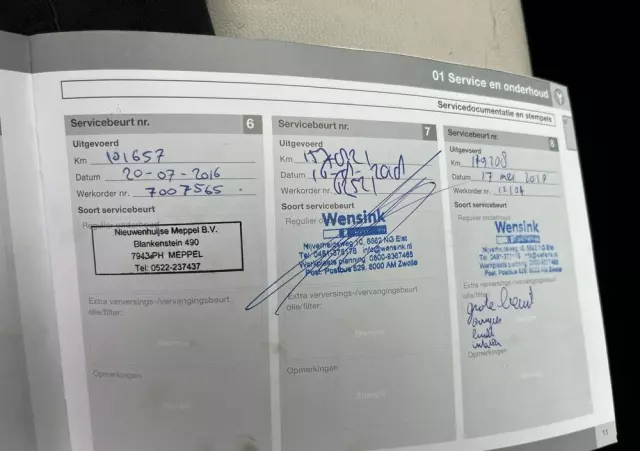 01 Service en onderhoud
Servicedocumentatie en stempels
Servicebeurt nr. 6
Uitgevoerd
Km 101657
Datum 20-07-2016
Werkorder nr. 7007565
Soort servicebeurt
Regulier onderhoud
Nieuwenhuijse Meppel B.V.
Blankenstein 490
7943 PH MEPPEL
Tel: 0522-237437
Extra verversings-/vervangingsbeurt
olie/filter:
Stempel
Opmerkingen
Stempel
Servicebeurt nr. 7
Uitgevoerd
Km
Datum
Werkorder nr.
Soort servicebeurt
Regulier
Wensink
Nijverheidsweg 10, 6662 NG Elst
Tel. 0481-376178 info@wensink.nl
Werkplaats planning 0800-9367465
Post: Postbus 529, 8000 AM Zwolle
Extra verversings-/vervangingsbeurt
olie/filter:
Stempel
Opmerkingen
Stempel
Servicebeurt nr. 8
Uitgevoerd
Km
Datum 17 mei 2018
Werkorder nr.
Soort servicebeurt
Regulier onderhoud
Wensink
Nijverheidsweg 10, 6662 NG Elst
info@wensink.nl
Werkplaats planning 0800-9367465
Post: Postbus 529, 8000 AM Zwolle
Extra verversings-/vervangingsbeurt
olie/filter:
grote beurt
Opmerkingen
11